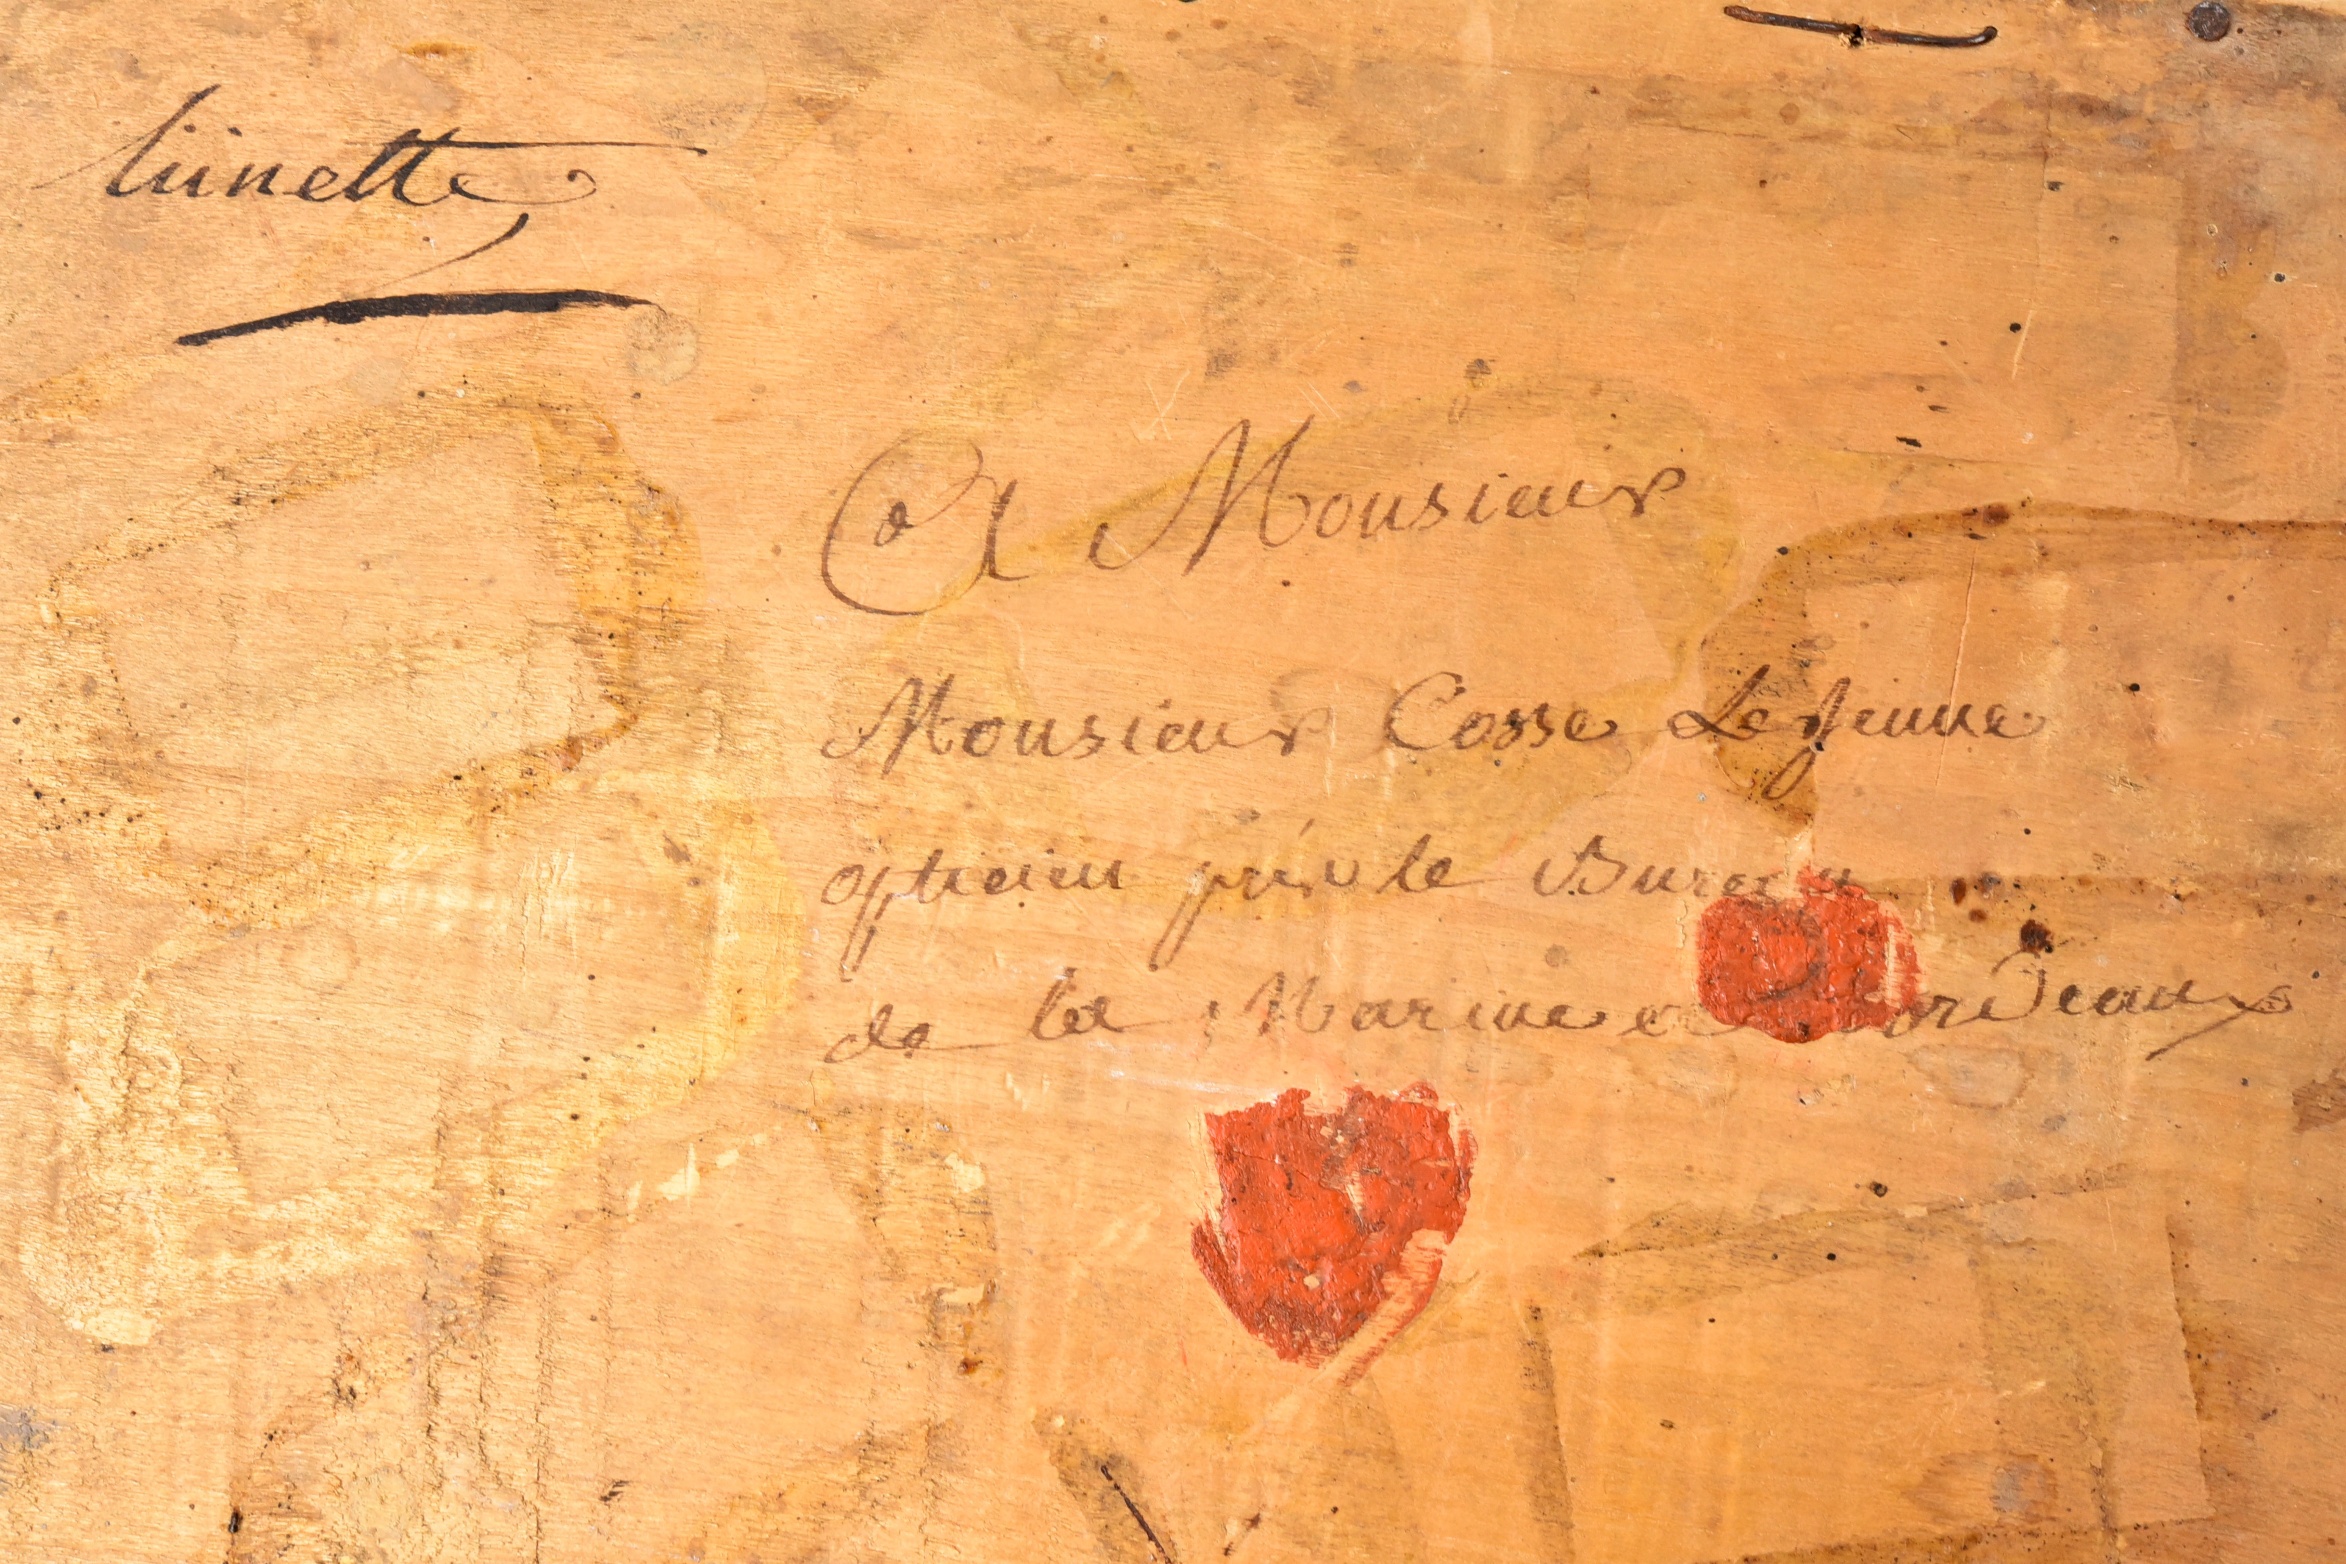 lünette
A Monsieur
Monsieur Cosse Le Jeune
opticien près le Bureau
de la Marine a Bordeaux